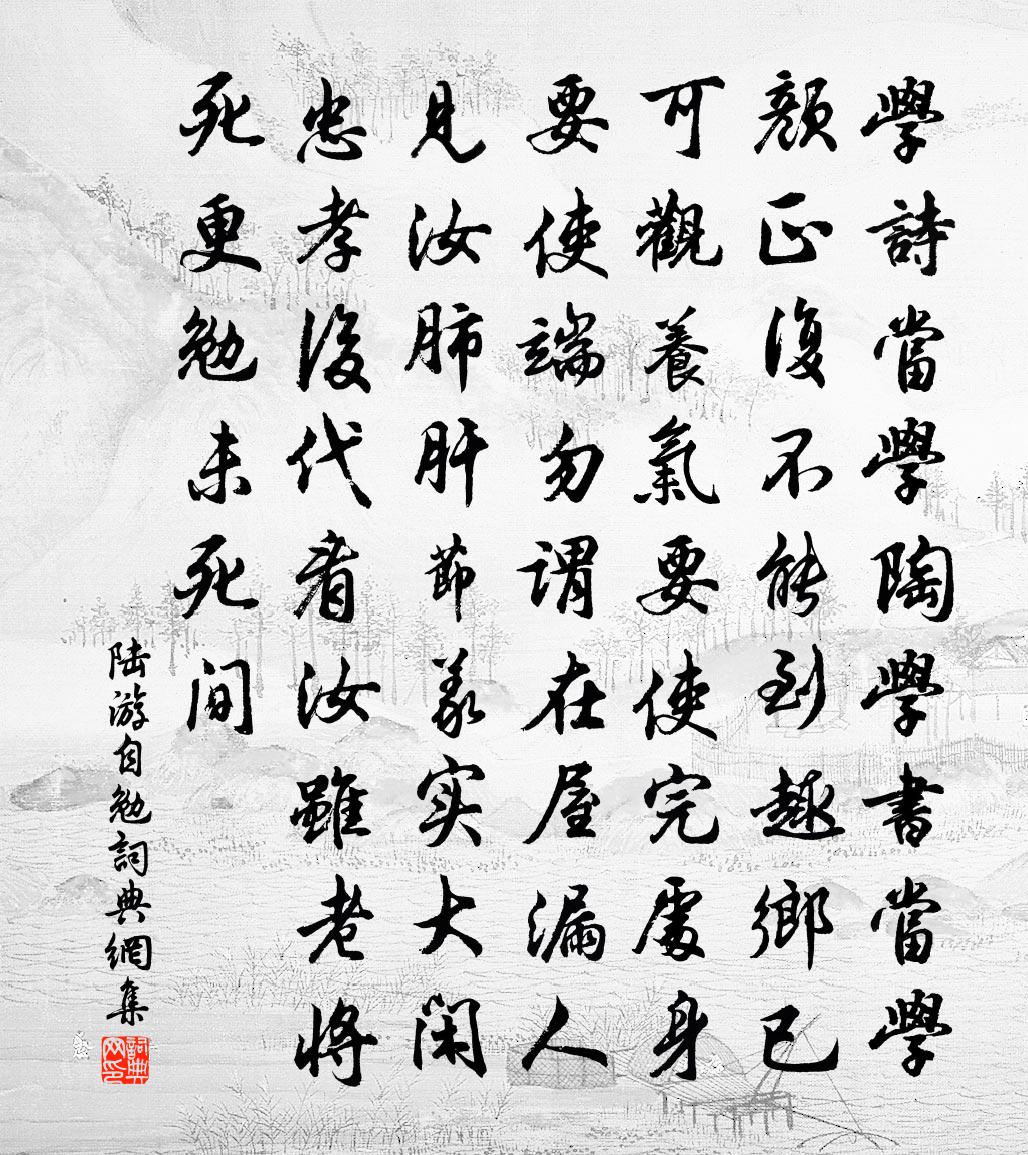 學詩當學陶學書當學
顏正復不能到趣鄉已
可觀養氣要使完處身
要使端勿謂在屋漏人
見汝肺肝節義实大閑
忠孝後代看汝雖老將
死更勉未死間
陆游自勉詞典網集
詞典网印